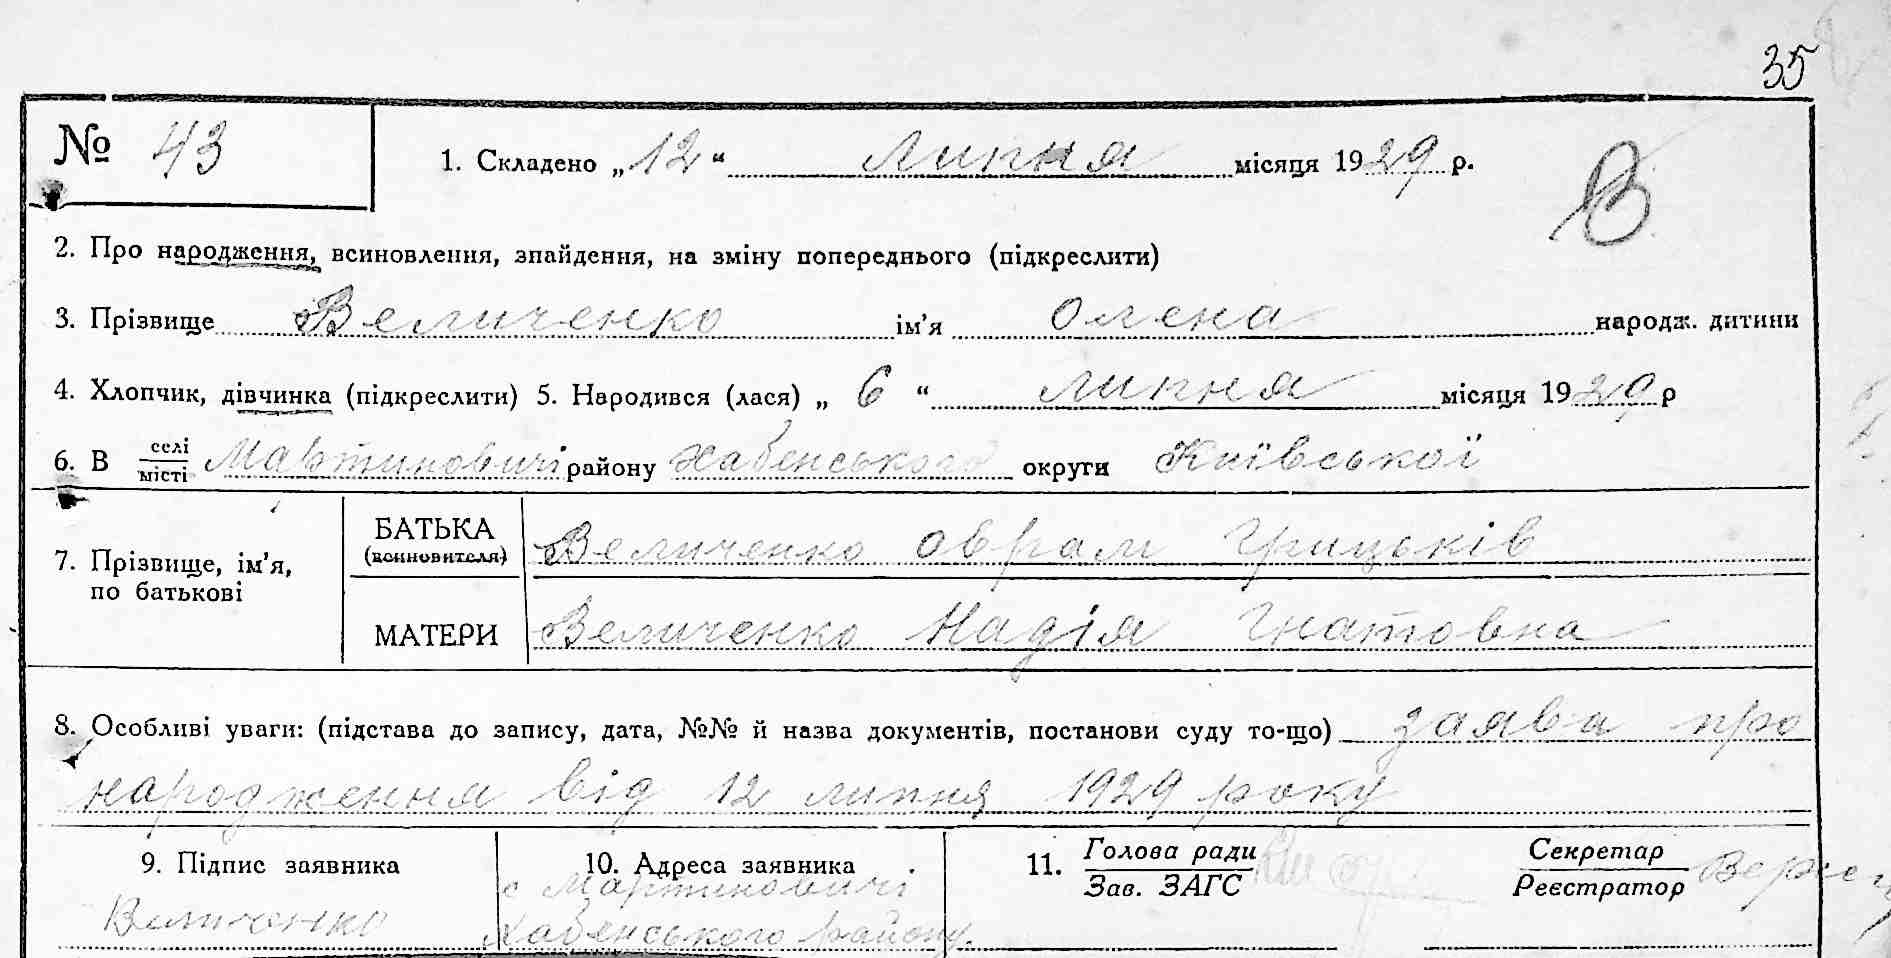 35
№ 43
1. Складено „12“ липня місяця 1929 р.
В
2. Про народження, всиновлення, знайдення, на зміну попереднього (підкреслити)
3. Прізвище Величенко ім’я Олена народж. дитини
4. Хлопчик, дівчинка (підкреслити) 5. Народився (лася) „ 6 “ липня місяця 1929 р
6. В селі/місті Мартиновичі району Хабенського округи Київської
7. Прізвище, ім’я, по батькові
БАТЬКА (всиновителя) Величенко Оврам Грицьків
МАТЕРИ Величенко Надія Гнатовна
8. Особливі уваги: (підстава до запису, дата, №№ й назва документів, постанови суду то-що) заява про
народження від 12 липня 1929 року
9. Підпис заявника
Величенко
10. Адреса заявника
с Мартиновичі
Хабенського району.
11. Голова ради
Зав. ЗАГС
Секретар
Реєстратор